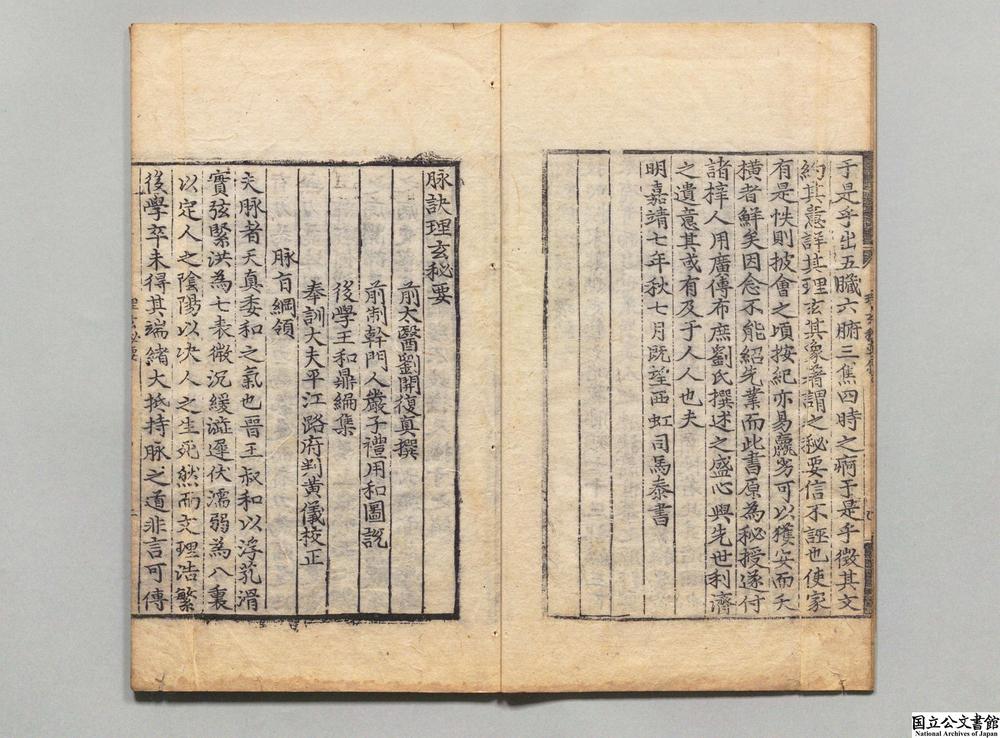 于是乎出五臟六腑三焦四時之痾于是乎徵其文
約其蕙詳其理玄其象著謂之秘要信不誣也使家
有是帙則披會之頃按紀亦易羸劣可以獲安而夭
橫者鮮矣因念不能紹先業而此書原為秘授遂付
諸梓人用廣傳布庶劉氏撰述之盛心與先世利濟
之遺意其或有及于人人也夫
明嘉靖七年秋七月既望西虹司馬泰書
脉訣理玄秘要
前太醫劉開復真撰
前制幹門人嚴子禮用和圖說
後學王和鼎編集
奉訓大夫平江路府判黃儀校正
脉有綱領
夫脉者天真委和之氣也晉王叔和以浮芤滑
實弦緊洪為七表微沉緩澁遲伏濡弱為八裏
以定人之陰陽以决人之生死然而文理浩繁
後學卒未得其端緒大抵持脉之道非言可傳
国立公文書館
National Archives of Japan